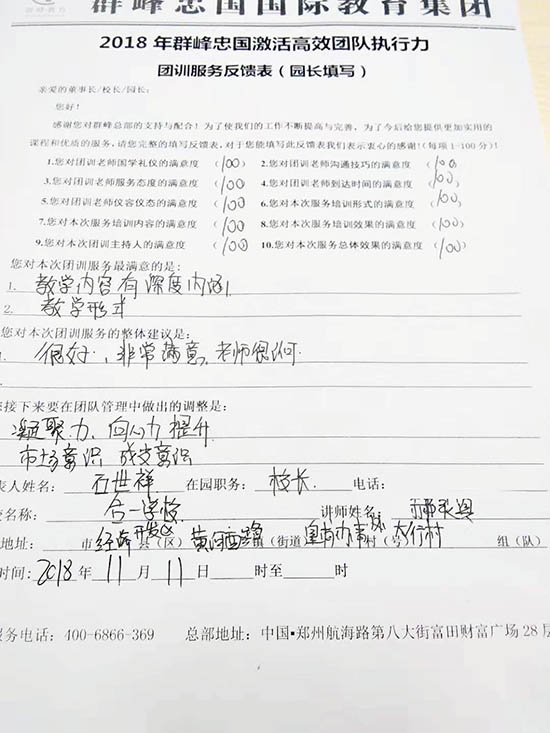 群峰忠国国际教育集团
2018年群峰忠国激活高效团队执行力
团训服务反馈表（园长填写）
亲爱的董事长/校长/园长：
您好！
感谢您对群峰总部的支持与配合！为了使我们的工作不断提高与完善，为了今后给您提供更加实用的
课程和优质的服务，请您完整的填写反馈表，对于您能填写此反馈表我们表示衷心的感谢！（每项1-100分）
1.您对团训老师国学礼仪的满意度 （100） 2.您对团训老师沟通技巧的满意度 （100）
3.您对团训老师服务态度的满意度 （100） 4.您对团训老师到达时间的满意度 （100）
5.您对团训老师仪容仪态的满意度 （100） 6.您对本次服务培训形式的满意度 （100）
7.您对本次服务培训内容的满意度 （100） 8.您对本次服务培训效果的满意度 （100）
9.您对本次团训主持人的满意度 （100） 10.您对本次服务总体效果的满意度 （100）
您对本次团训服务最满意的是：
1. 教学内容有深度内涵
2. 教学形式
您对本次团训服务的整体建议是：
很好，非常满意，老师很
接下来要在团队管理中做出的调整是：
凝聚力、向心力提升
市场意识 成交意识
表人姓名：石世祥 在园职务：校长 电话：
校名称：合一学校 讲师姓名：
地址： 市 经济开发区 县（区） 黄河西路 镇（街道） 办事处 村（号） 大行村 组（队）
时间：2018年11月11日 时至 时
服务电话：400-6866-369 总部地址：中国·郑州航海路第八大街富田财富广场28层